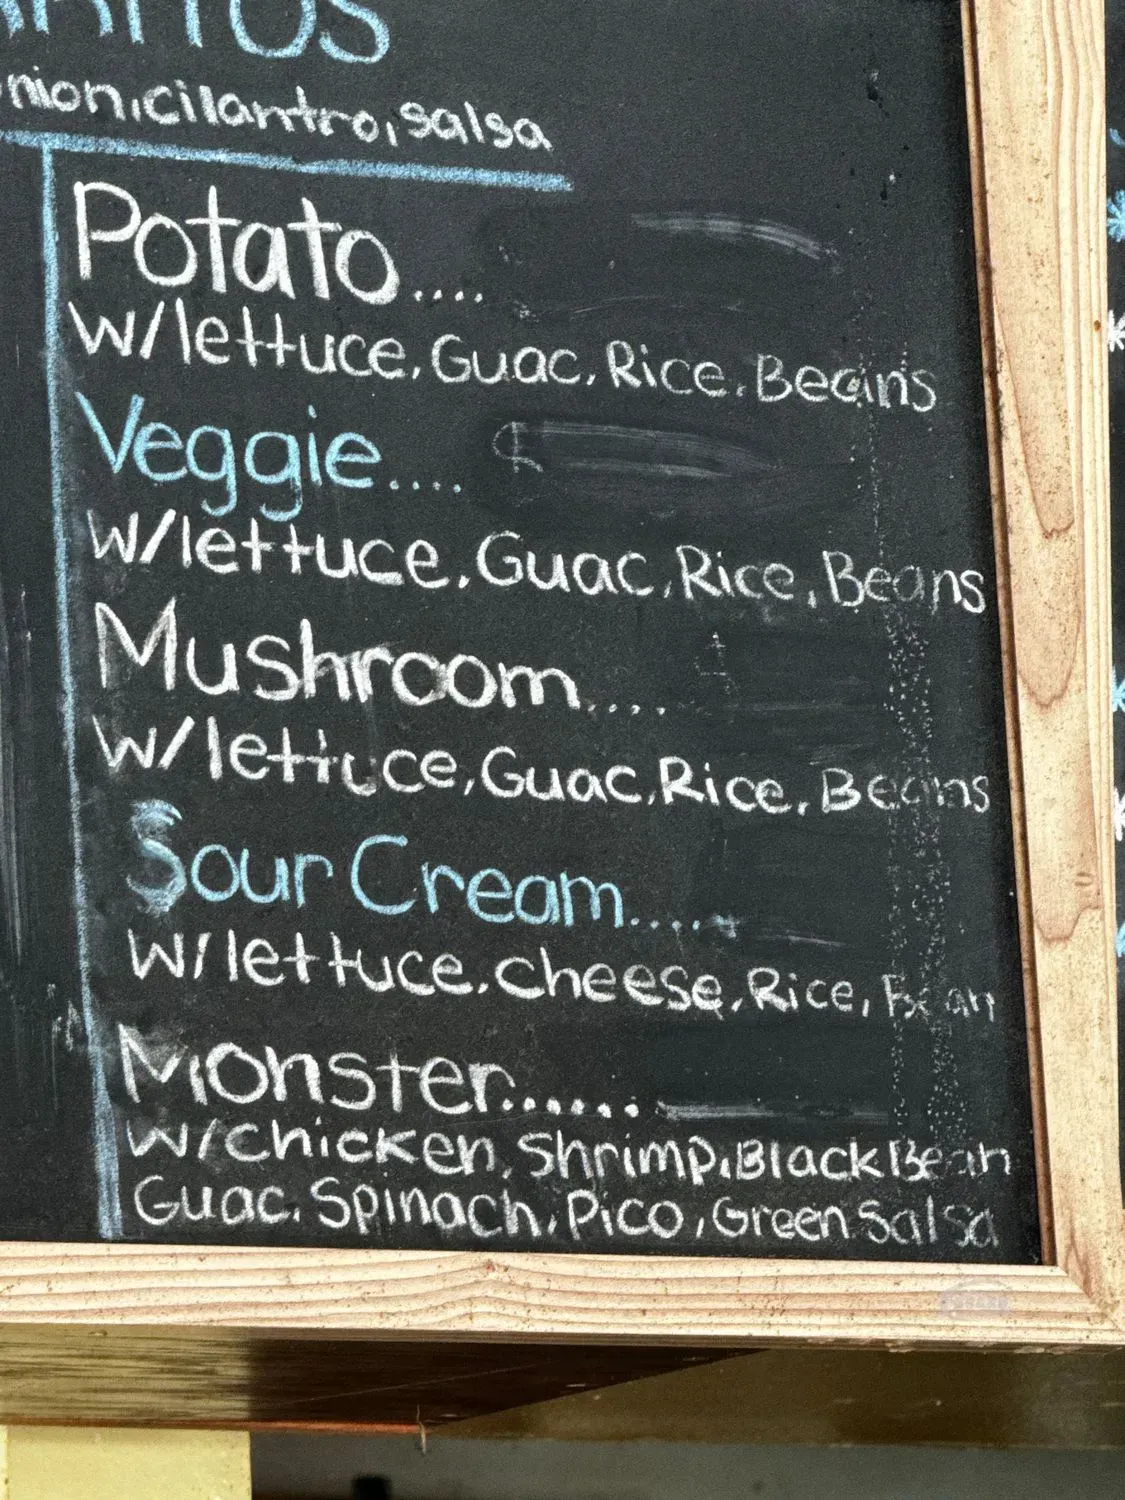 onion, cilantro, salsa
Potato....
w/lettuce, Guac, Rice, Beans
Veggie....
w/lettuce, Guac, Rice, Beans
Mushroom....
w/lettuce, Guac, Rice, Beans
Sour Cream.....
w/lettuce, cheese, Rice, Bean
Monster......
w/chicken, Shrimp, Black Bean
Guac, Spinach, Pico, Green Salsa